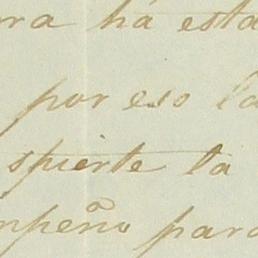 ra há esta
por eso la
spierte la
mpeño para